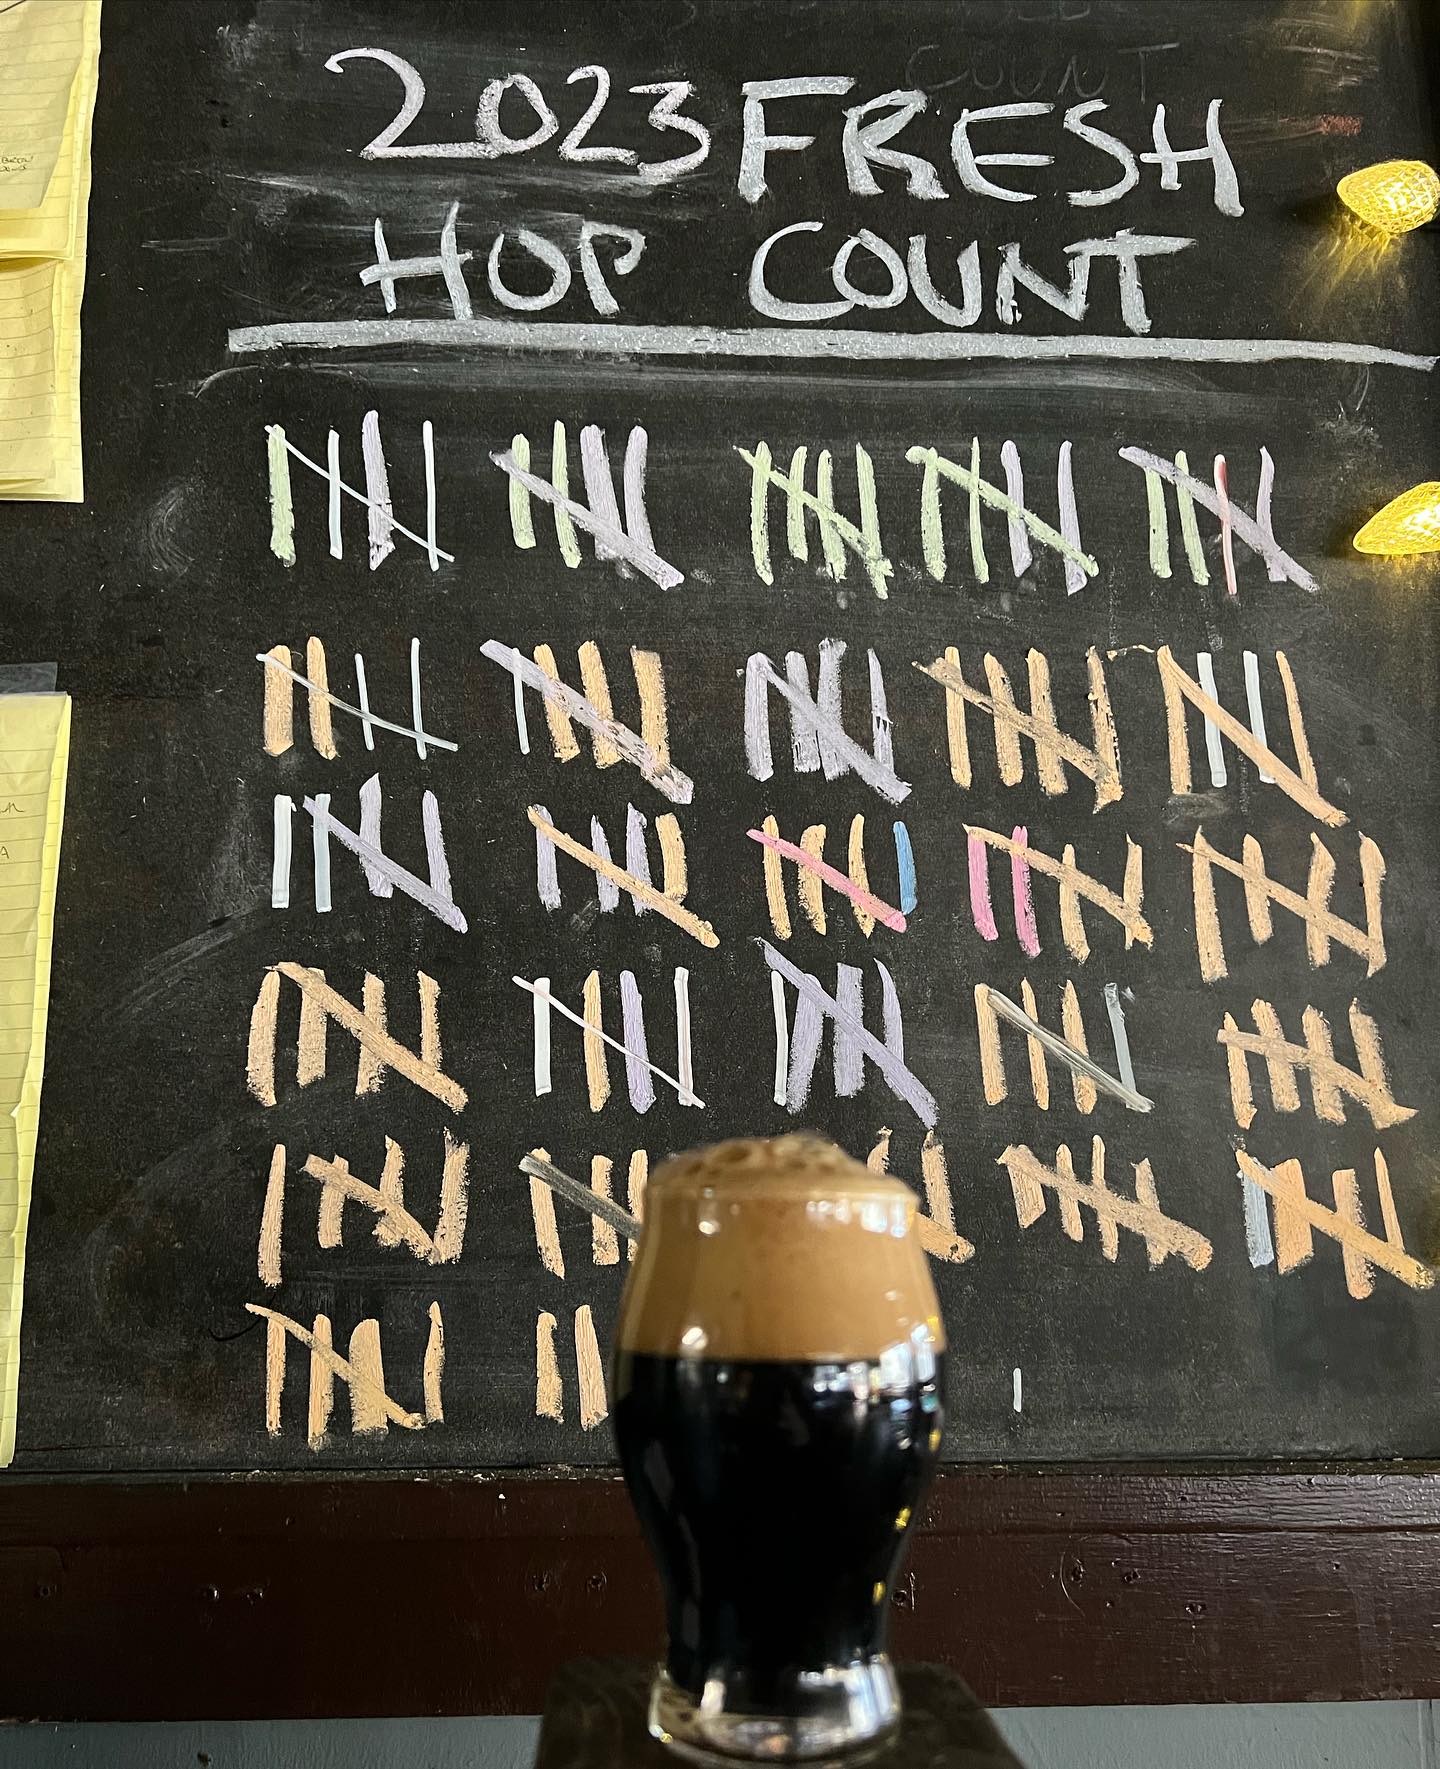 COUNT
2023 FRESH
HOP COUNT